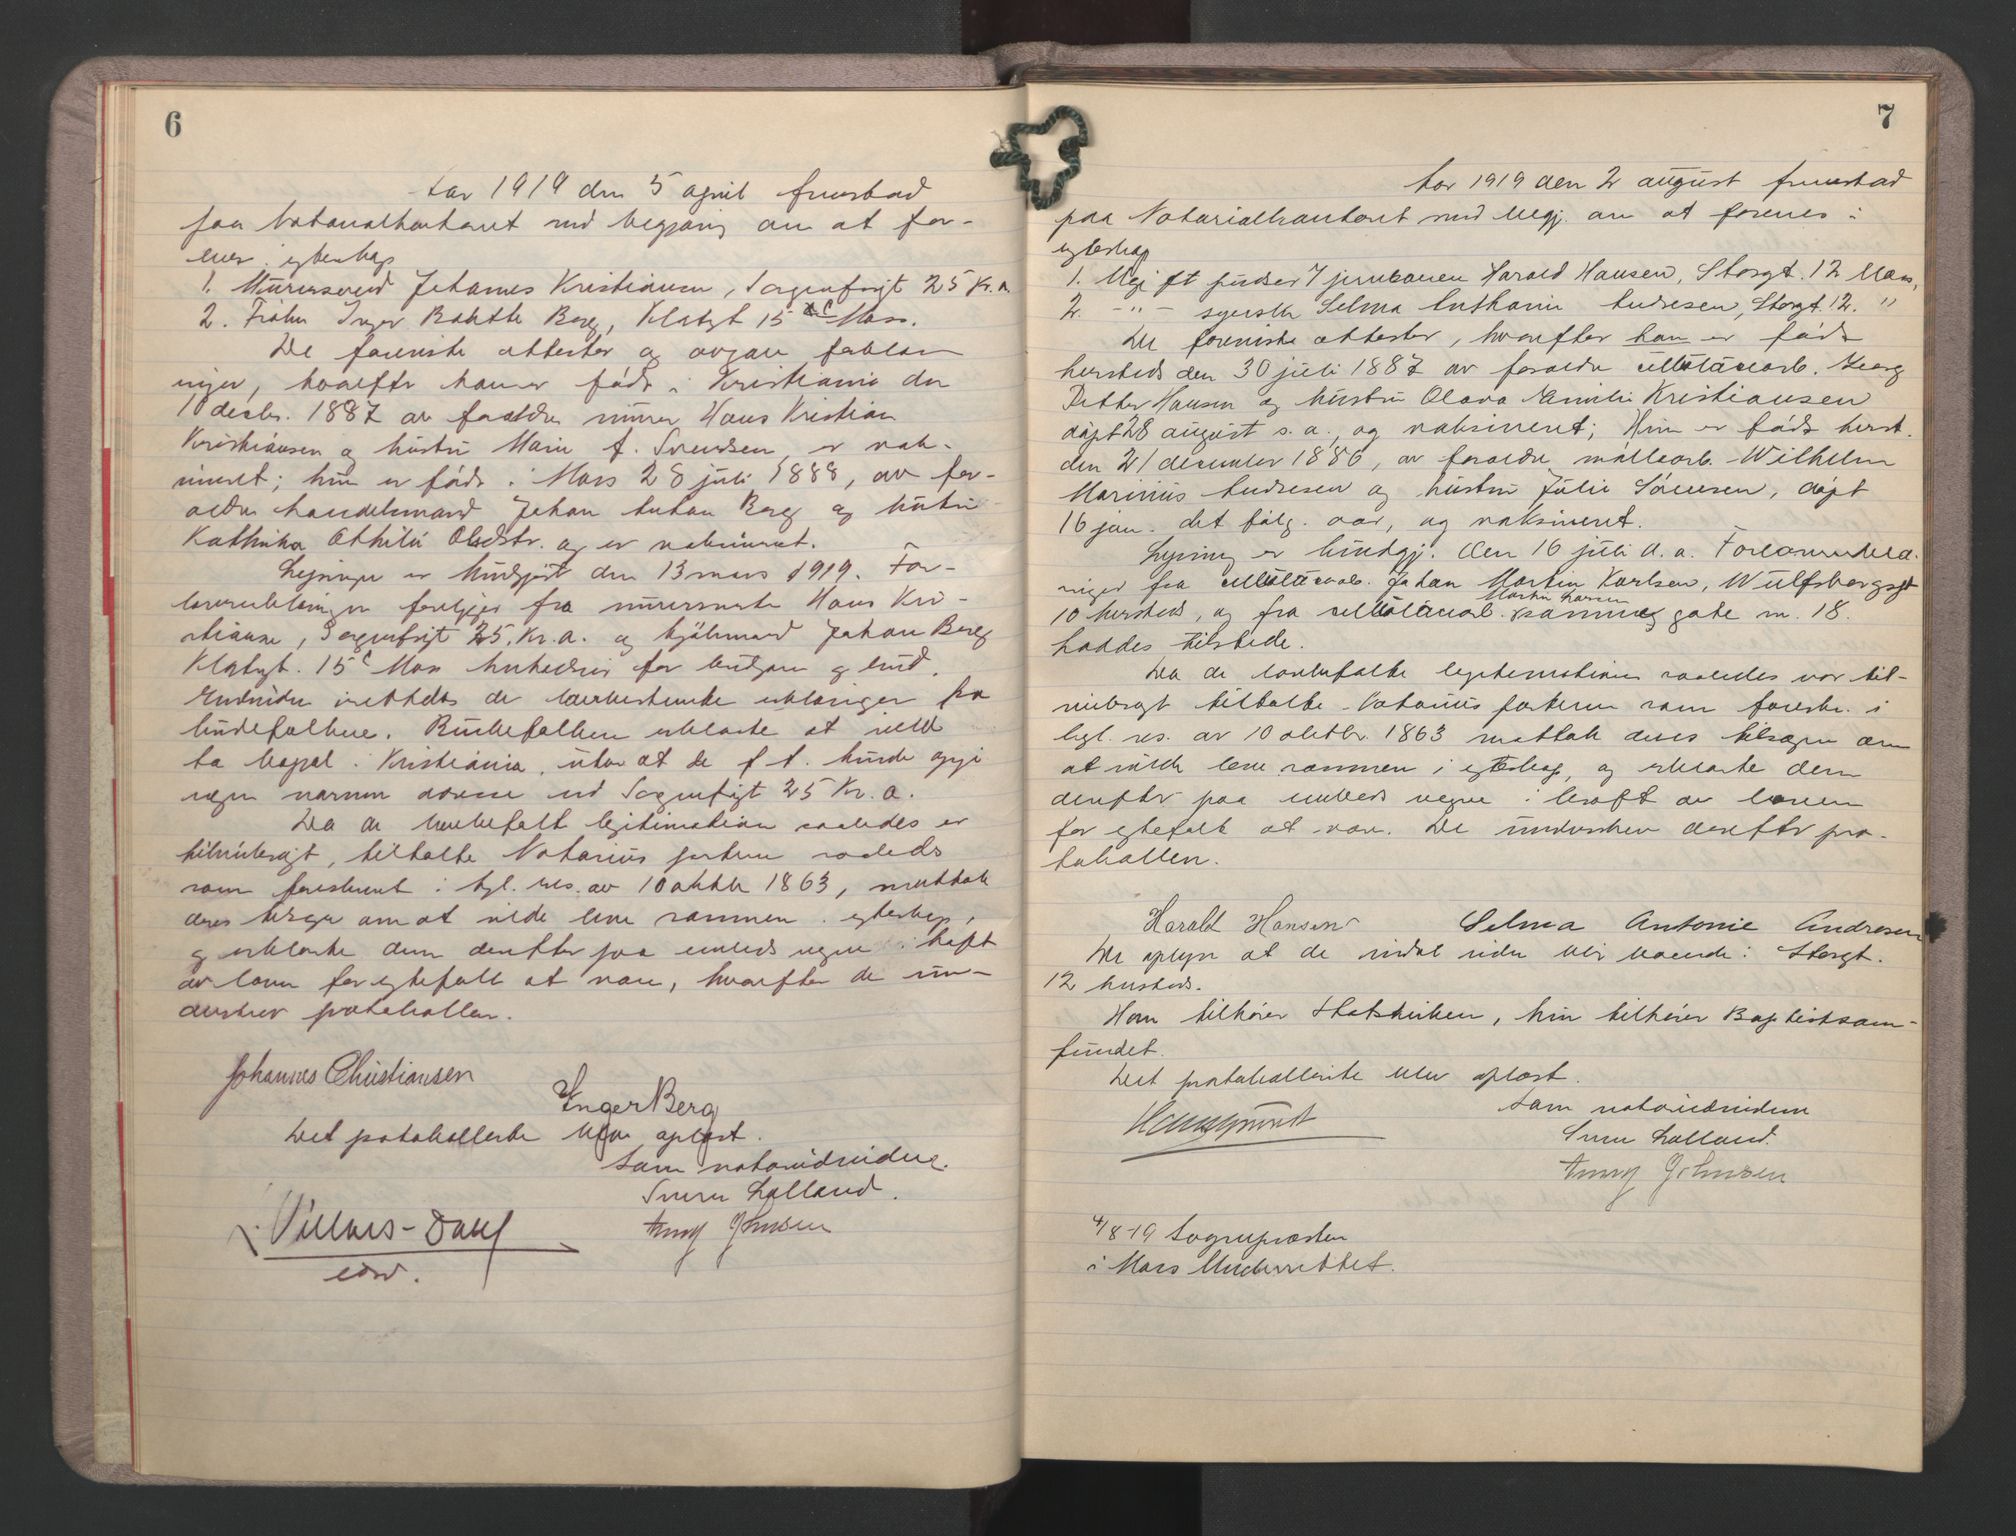 6
Aar 1919 den 5 april fremstod
paa Notarialkontoret med begjæring om at for-
enes i egteskap
1. Murersvend Johannes Kristiansen, Sorgenfrigt 25 Kr.a.
2. Frøken Inger Berg, 15 c Moss.
De foreviste attester og avgav erklær-
inger, hvorefter han er født i Kristiania den
10 decbr. 1887 av forældre murer Hans Kristian
Kristiansen og hustru Marie f. Svendsen, er vak-
cineret; hun er født i Moss 28 juli 1888, av for-
ældre handelsmand Johan Anton Berg og hustru
Kathinka Othilie og er vaksineret.
Lysninger er kundgjort den 13 mars 1919. For-
lovererklæringer foreligger fra murermester Hans Kri-
stiansen, Sorgenfrigt 25, Kr.a. og kjøbmand Johan Berg
15 c Moss
Endvidere de lovbestemte erklæringer fra
brudefolkene. Brudefolkene erklærte at ville
ta bopæl i Kristiania, uten at de f. t. kunde opgi
nogen nærmere adresse end Sorgenfrigt 25 Kr.a.
Da de legitimation saaledes er
tilveiebragt, tiltalte Notarius parterne saaledes
som foreskrevet i kgl. res. av 10 oktbr 1863, mottok
deres tilsagn om at ville leve sammen i egteskap,
og erklærte dem derefter paa embeds vegne i kraft
av loven for egtefolk at være, hvorefter de un-
derskrev protokollen.
Johannes Christiansen
Inger Berg
Det protokollerte blev oplæst.
Som notarialvidne.
Sverre Lolland.
Anny Johnsen
Villars-Dahl
const.
7
Aar 1919 den 2 august fremstod
paa Notarialkontoret med begj. om at forenes i
egteskap
1. Ugift pudser v/ jernbanen Harald Hansen, Storgt. 12 Moss,
2. -"- syerske Selma Anthonie Andresen, Storgt. 12. "
De foreviste attester, hvorefter han er født
hersteds den 30 juli 1887 av forældre Georg
Petter Hansen og hustru Olava Emilie Kristiansen
døpt 28 august s. a., og vaksineret; Hun er født herst.
den 21 december 1886, av forældre møllearb. Wilhelm
Marinius Andresen og hustru Julie Sørensen, døpt
16 jan. det følg. aar, og vaksineret.
Lysning er kundgj. den 16 juli d. a. Forlovererklæ-
ringer fra Johan Martin Karlsen, Wulfsbergsgt
10 hersteds, og fra Martin Larsen gate nr. 18.
haddes tilstede.
Da de legitimation saaledes var til-
veiebragt tiltalte Notarius parterne som foreskr. i
kgl. res. av 10 oktbr. 1863 mottok deres tilsagn om
at ville leve sammen i egteskap, og erklærte dem
derefter paa embeds vegne i kraft av loven
for egtefolk at være. De underskrev derefter pro-
tokollen.
Harald Hansen Selma Antonie Andresen
De oplyse at de indtil videre blir boende i Storgt.
12 hersteds.
Han tilhører Statskirken, hun tilhører Baptistsam-
fundet.
Det protokollerte blev oplæst.
Som notarialvidne
Sverre Lolland.
Anny Johnsen
4/8-19 Sogneprœsten
i Moss Underrettet.